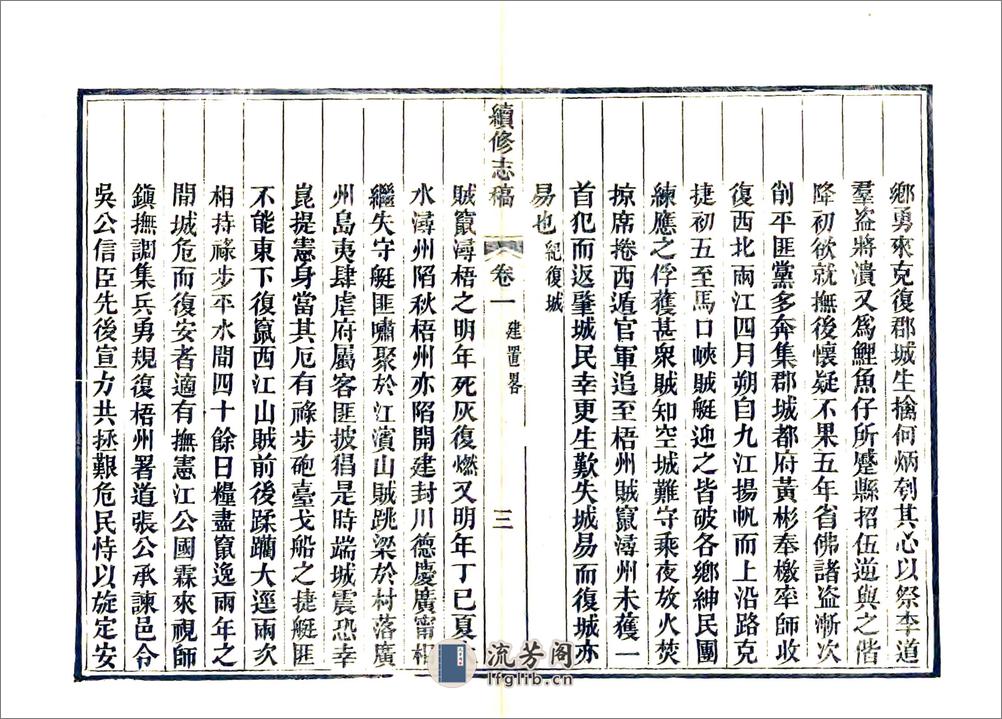 鄉勇來克復郡城生擒何炳刳其心以祭李道
羣盜將潰又爲鯉魚仔所蹙縣招伍逆與之偕
降初欲就撫後懷疑不果五年省佛諸盜漸次
削平匪黨多奔集郡城都府黃彬奉檄率師收
復西北兩江四月朔自九江揚帆而上沿路克
捷初五至馬口峽賊艇迎之皆破各鄉紳民團
練應之俘獲甚衆賊知空城難守乘夜放火焚
掠席捲西遁官軍追至梧州賊竄潯州未獲一
首犯而返肇城民幸更生歎失城易而復城亦
易也紀復城
續修志稿 卷一 建置畧 三
賊竄潯梧之明年死灰復燃又明年丁巳夏
水潯州陷秋梧州亦陷開建封川德慶廣甯相
繼失守艇匪嘯聚於江濱山賊跳梁於村落廣
州島夷肆虐府屬客匪披猖是時端城震恐幸
崑提憲身當其厄有祿步砲臺戈船之捷艇匪
不能東下復竄西江山賊前後蹂躪大逕兩次
相持祿步平水間四十餘日糧盡竄逸兩年之
開城危而復安者適有撫憲江公國霖來視師
鎮撫調集兵勇規復梧州署道張公承諫邑令
吳公信臣先後宣力共拯艱危民恃以旋定安
流芳阁
lfglib.cn